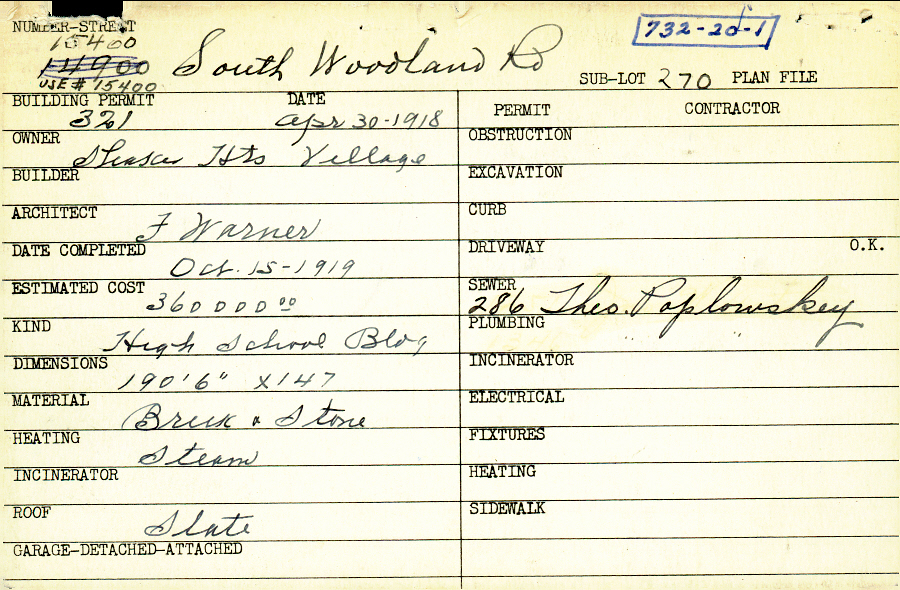 NUMBER-STREET
15400
14900 South Woodland Rd
USE # 15400
732-20-1
SUB-LOT 270 PLAN FILE
BUILDING PERMIT DATE
321 Apr 30-1918
OWNER
Shaker Hts Village
BUILDER
ARCHITECT
F Warner
DATE COMPLETED
Oct. 15-1919
ESTIMATED COST
360000 00
KIND
High School Bldg
DIMENSIONS
190'6" x 147
MATERIAL
Brick & Stone
HEATING
Steam
INCINERATOR
ROOF
Slate
GARAGE-DETACHED-ATTACHED
PERMIT CONTRACTOR
OBSTRUCTION
EXCAVATION
CURB
DRIVEWAY O.K.
SEWER
286 Theo. Poplowskey
PLUMBING
INCINERATOR
ELECTRICAL
FIXTURES
HEATING
SIDEWALK